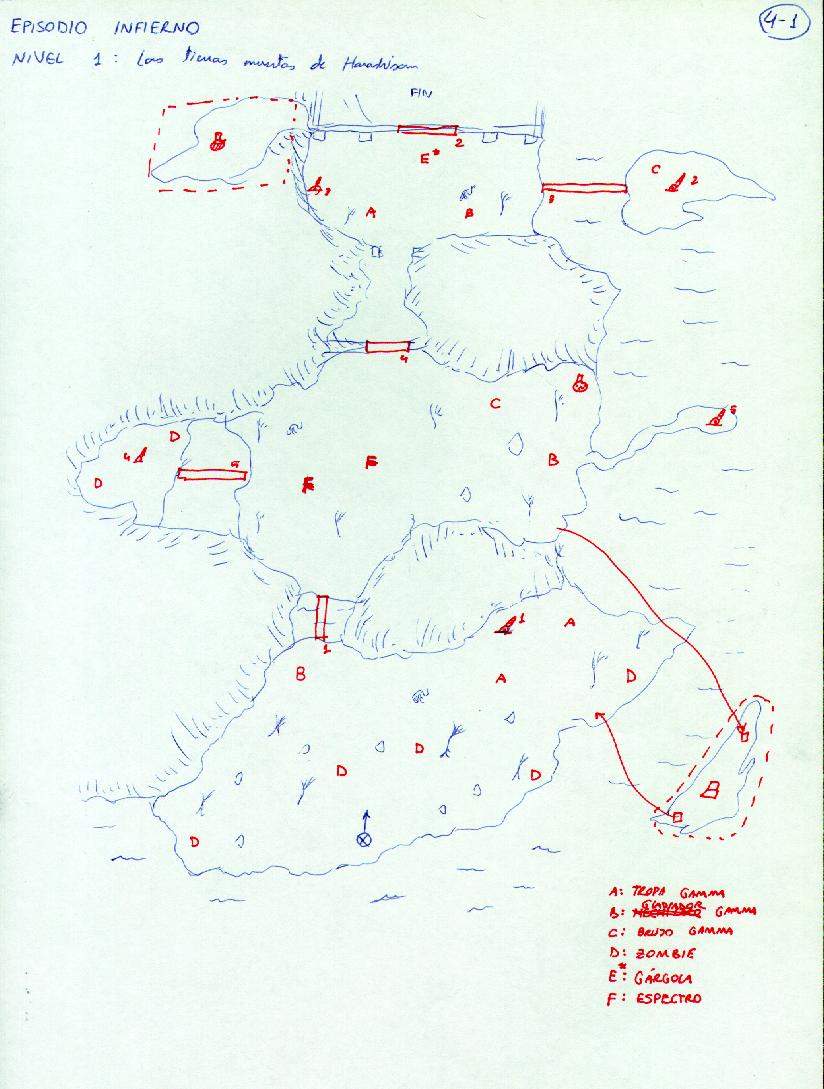 4-1
EPISODIO INFIERNO
NIVEL 1: Las tierras muertas de
FIN
2
E*
C
2
3
3
A
B
4
C
5
D
4
5
D
B
F
F
1
A
1
B
A
D
D
D
D
D
A: TROPA GAMMA
GLADIADOR
B: GAMMA
C: BRUJO GAMMA
D: ZOMBIE
E*: GÁRGOLA
F: ESPECTRO